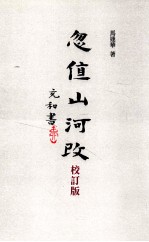 馬逢華 著
忽值山河改
充和書
校訂版